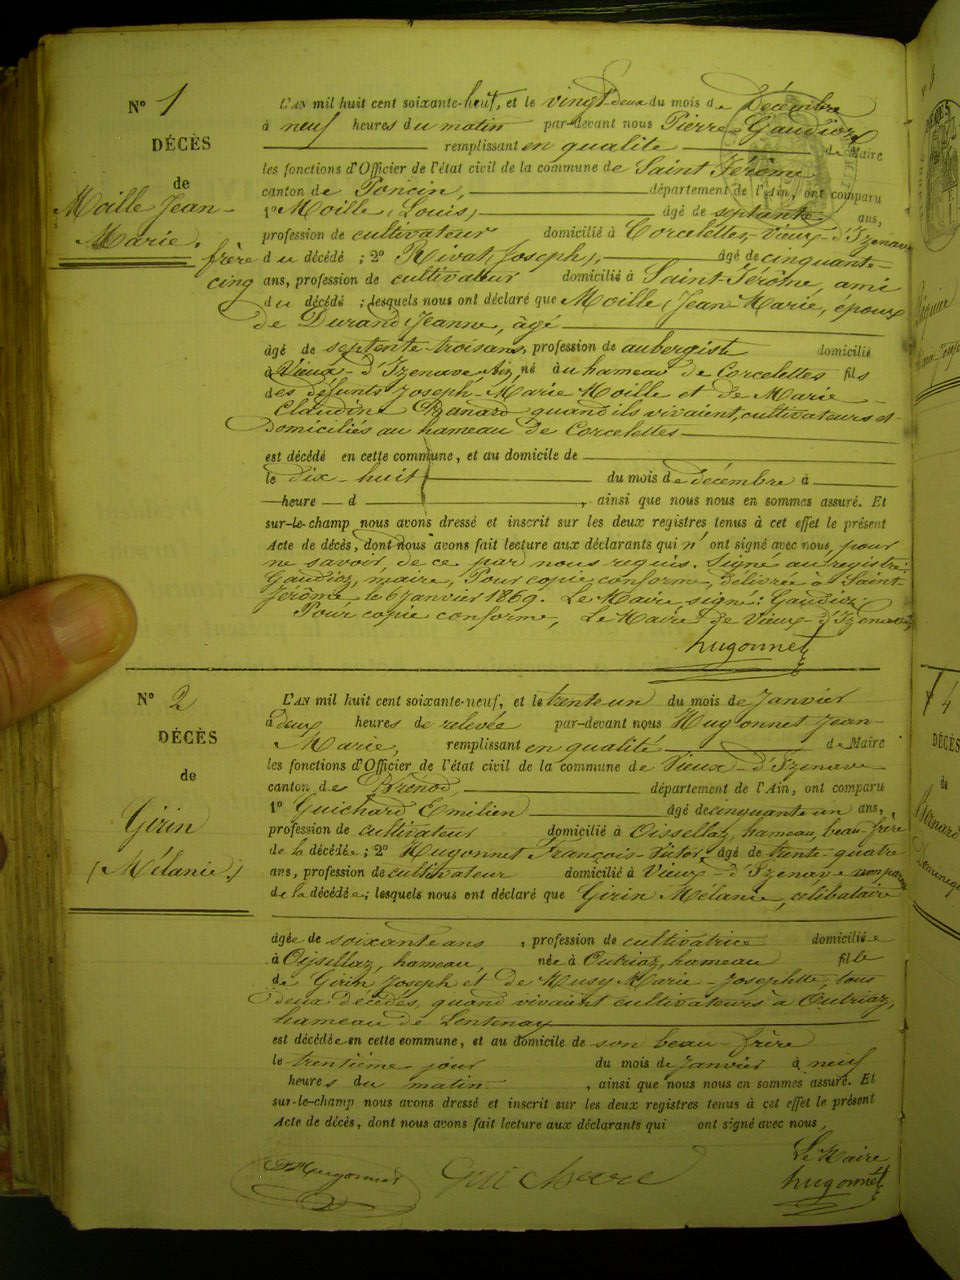 N° 1
DÉCÈS
de
Moille Jean-
Marie.
L'AN mil huit cent soixante-huit, et le vingt deux du mois de Décembre
à neuf heures du matin par-devant nous Pierre Gaudioz
remplissant en qualité de Maire
les fonctions d'Officier de l'état civil de la commune de Saint Jérôme
canton de Poncin, département de l'Ain, ont comparu
1° Moille (Louis) âgé de septante ans,
profession de cultivateur domicilié à Corcelettes, Vieux-d'Izenave
frère du décédé ; 2° Rivat Joseph), âgé de cinquante-
cinq ans, profession de cultivateur domicilié à Saint-Jérôme, ami
du décédé ; lesquels nous ont déclaré que Moille (Jean-Marie, époux
de Durand Jeanne, âgé
âgé de septente-trois ans, profession de aubergiste domicilié
à Vieux-d'Izenave né au hameau de Corcelettes fils
des défunts Joseph-Marie Moille et de Marie
Claudine quand ils vivaient, cultivateurs et
domiciliés au hameau de Corcelettes
est décédé en cette commune, et au domicile de
le dix-huit du mois de décembre à
heure d , ainsi que nous nous en sommes assuré. Et
sur-le-champ nous avons dressé et inscrit sur les deux registres tenus à cet effet le présent
Acte de décès, dont nous avons fait lecture aux déclarants qui n'ont signé avec nous pour
ne savoir, de ce par nous requis. Signé au registre:
Gaudioz, maire, Pour copie conforme, délivrée à Saint-
Jérôme le 6 Janvier 1869. Le Maire signé: Gaudioz
Pour copie conforme, Le Maire de Vieux-d'Izenave
hugonnet
N° 2
DÉCÈS
de
Girin
(Mélanie.)
L'AN mil huit cent soixante-neuf, et le trente-un du mois de Janvier
à deux heures de relevée par-devant nous Hugonnet Jean-
Marie, remplissant en qualité de Maire
les fonctions d'Officier de l'état civil de la commune de Vieux-d'Izenave
canton de Brénod, département de l'Ain, ont comparu
1° Guichard Emilien âgé de cinquante un ans,
profession de cultivateur domicilié à Oissellaz, hameau, beau-frère
de la décédée ; 2° Hugonnet François- âgé de trente-quatre
ans, profession de cultivateur domicilié à Vieux-d'Izenave non parent
de la décédée ; lesquels nous ont déclaré que Girin Mélanie, célibataire
âgée de soixante ans , profession de cultivatrice domiciliée
à Oissellaz, hameau, née à Outriaz, hameau fille
de Girin Joseph et de Musy Marie-Josephte, tous
deux décédés, quand vivaient cultivateurs à Outriaz,
hameau de Lentenay
est décédée en cette commune, et au domicile de son beau-frère
le trentième jour du mois de Janvier à neuf
heures du matin , ainsi que nous nous en sommes assuré. Et
sur-le-champ nous avons dressé et inscrit sur les deux registres tenus à cet effet le présent
Acte de décès, dont nous avons fait lecture aux déclarants qui ont signé avec nous,
Le Maire
Hugonnet Guichard hugonnet
4
DÉCÈS
de